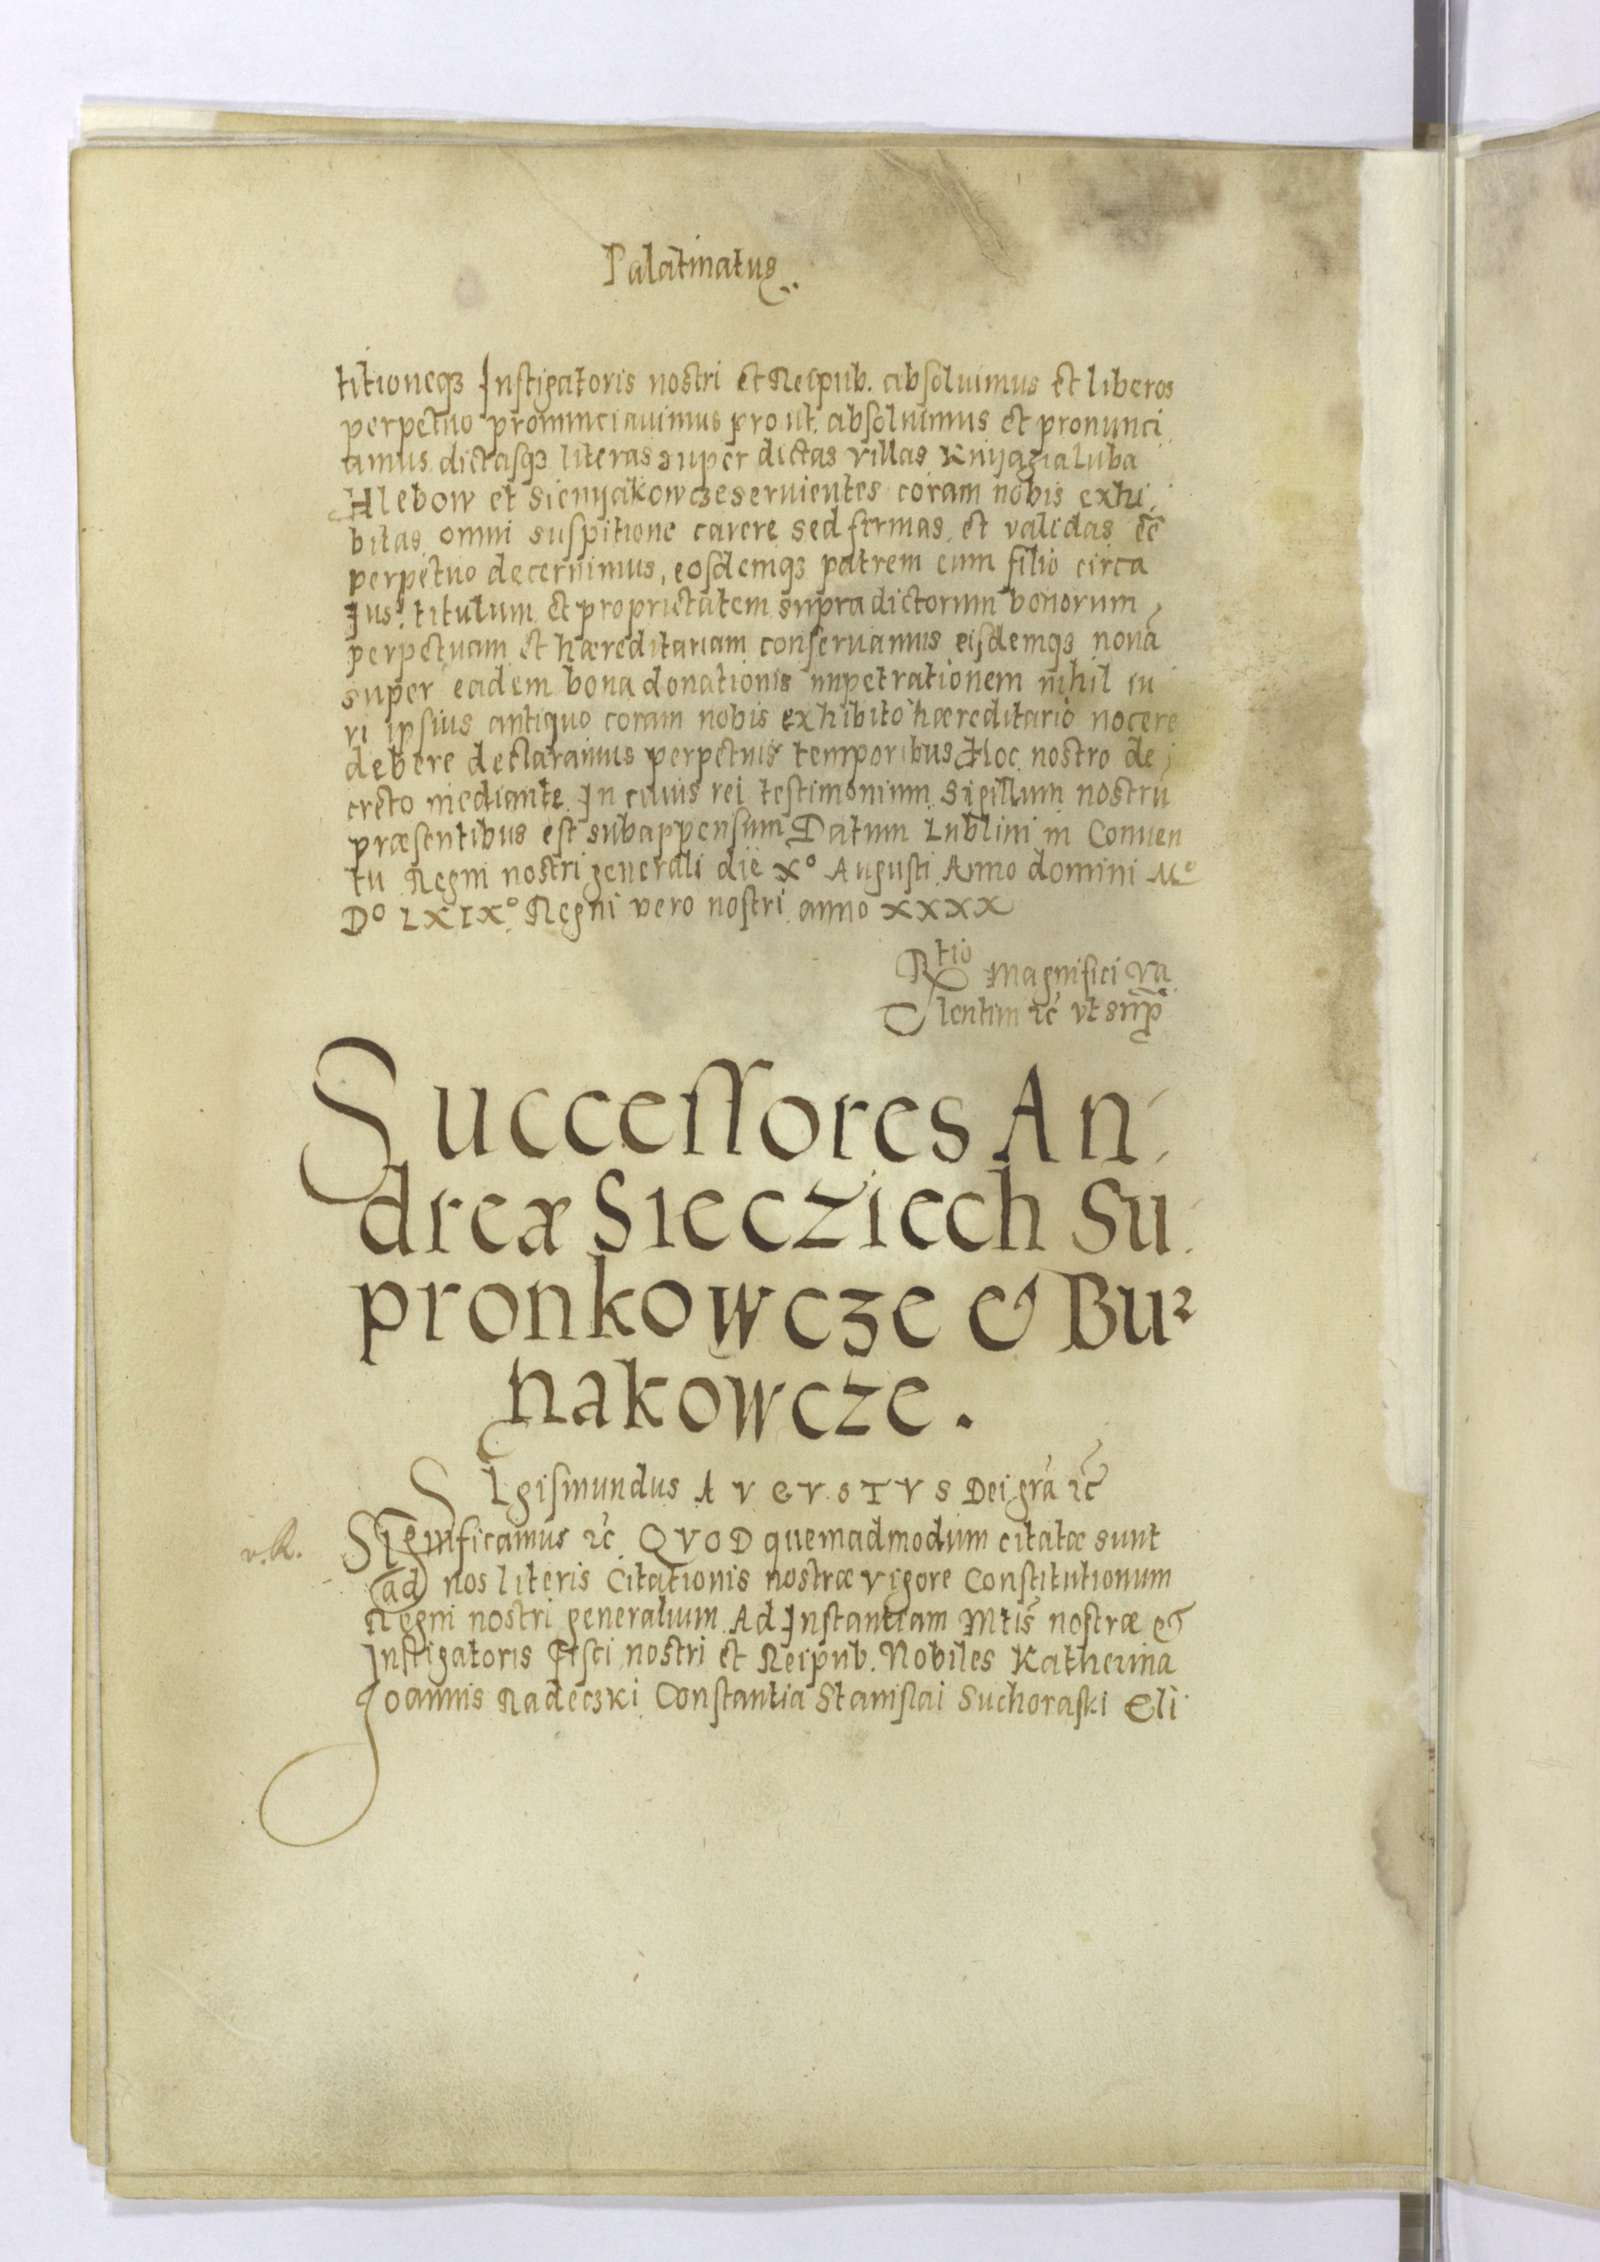 Palatinatus
titioneqꝫ Instigatoris nostri et Reipub. absoluimus et liberos
perpetuo pronunciauimus pro ut absoluimus et pronunci
amus dictasqꝫ literas super dictas villas Knijazialuba
Hlebow et Siemijakowcze seruientes coram nobis exhi
bitas omni suspitione carere sed firmas et validas eē
perpetuo decernimus, eosdemqꝫ patrem cum filio circa
Jus titulum et proprietatem supradictorum bonorum
perpetuam et hæreditariam conseruamus eisdemqꝫ nouā
super eadem bona donationis impetrationem nihil iu
ri ipsius antiquo coram nobis exhibito hæreditario nocere
debere declaramus perpetuis temporibus Hoc nostro de
creto mediante In cuius rei testimonium Sigillum nostrū
præsentibus est subappensum Datum Lublini in Conuen
tu Regni nostri generali die Xº Augusti Anno domini Mº
Dº LXIXº Regni vero nostri anno XXXX
Rtio Magnifici Va
lentini ⁊c̄ vt sup̄
Successores An
dreæ Siecziech Su
pronkowcze & Bur
nakowcze.
SIgismundus AVGVSTVS Dei grā ⁊c̄
Significamus ⁊c̄ QVOD quemadmodum citatæ sunt
ad nos literis Citationis nostræ vigore Constitutionum
Regni nostri generalium Ad Instantiam Mtis nostræ &
Instigatoris Fisci nostri et Reipub. Nobiles Katherina
Joannis Radeczki Constantia Stanislai Suchoraski Eli